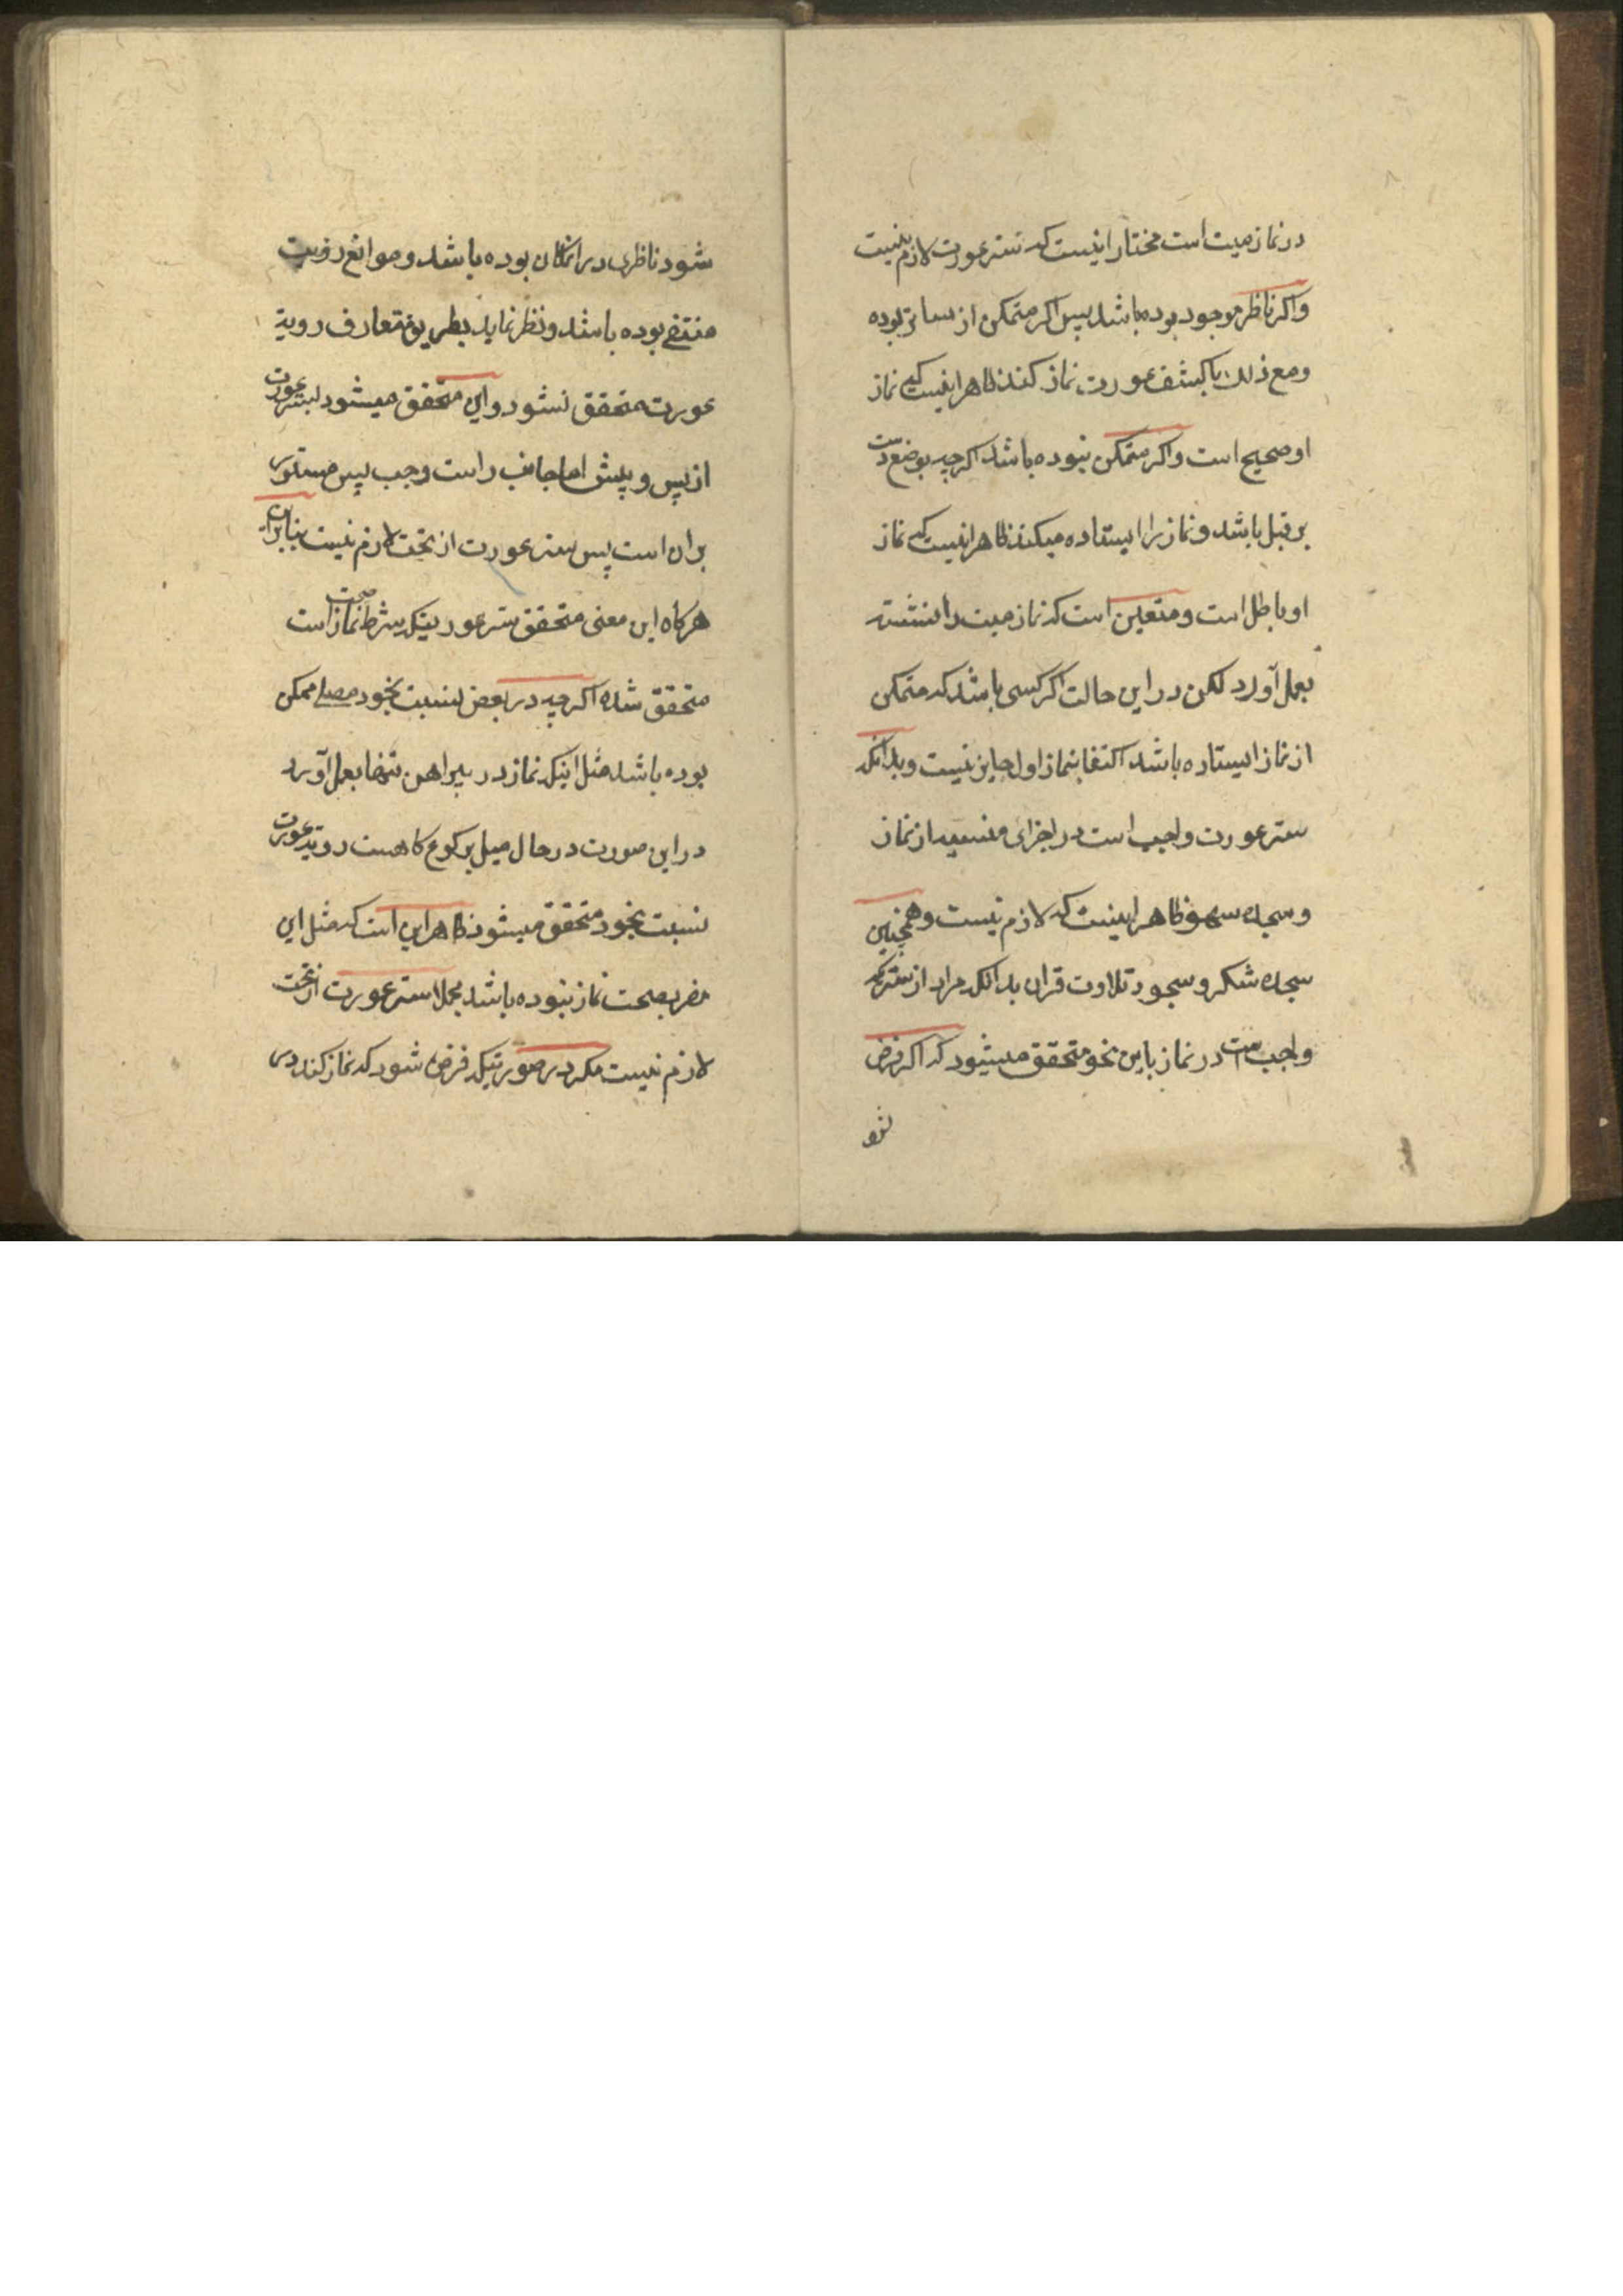 در نماز میت است مختار اینست که ستر عورت لازم نیست
و اکر ناظر موجود بوده باشد پس اکر متمکن از ساتر بوده
و مع ذلک با کشف عورت نماز کند ظاهر اینست که نماز
او صحیح است و اکر متمکن نبوده باشد اکرچه بوضع دست
بر قبل باشد و نماز را ایستاده میکند ظاهر اینست که نماز
او باطل است و متعین است که نماز میت را نشسته
بعمل آورد لکن در این حالت اکر کسی باشد که متمکن
از نماز ایستاده باشد اکتفا بنماز اول جایز نیست و بدانکه
ستر عورت واجب است در اجزای منسیه از نماز
و سجده سهو ظاهر اینست که لازم نیست و همچنین
سجده شکر و سجود تلاوت قران بدانکه مراد از ستر که
واجب است در نماز باین نحو متحقق میشود که اکر فرض
شو
شود ناظری در انمکان بوده باشد و موانع رؤیت
منتفی بوده باشد و نظر نماید بطریق متعارف رویة
عورت متحقق نشود و این متحقق میشود بستر عورت
از پس و پیش اما جانب راست و چپ پس مستوری
بران است پس ستر عورت از تحت لازم نیست بنابراین
هرکاه این معنی متحقق ستر عورتیکه شرط صحت نماز است
متحقق شده اکرچه در بعض نسبت بخود مصلی ممکن
بوده باشد مثل اینکه نماز در پیراهن تنها بعمل آورد
در این صورت در حال میل برکوع کاهست رویة عورت
نسبت بخود متحقق میشود ظاهر این است که مثل این
مضر بصحت نماز نبوده باشد مجملا ستر عورت از تحت
لازم نیست مکر در صورتیکه فرض شود که نماز کند در